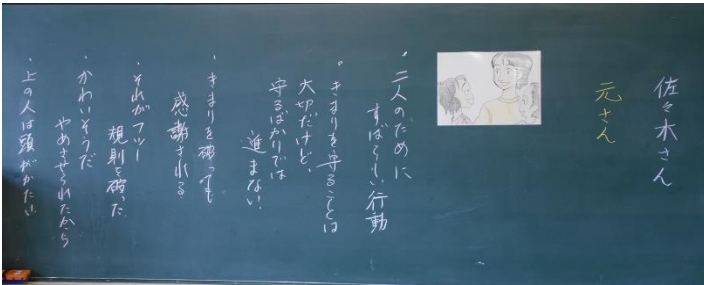 佐々木さん
元さん
・二人のために
すばらしい行動
・きまりを守ることは
大切だけど、
守るばかりでは
進まない
・きまりを破っても
感謝される
・それがフツー
規則を破った
・かわいそうだ
やめさせられたから
・上の人は頭がかたい